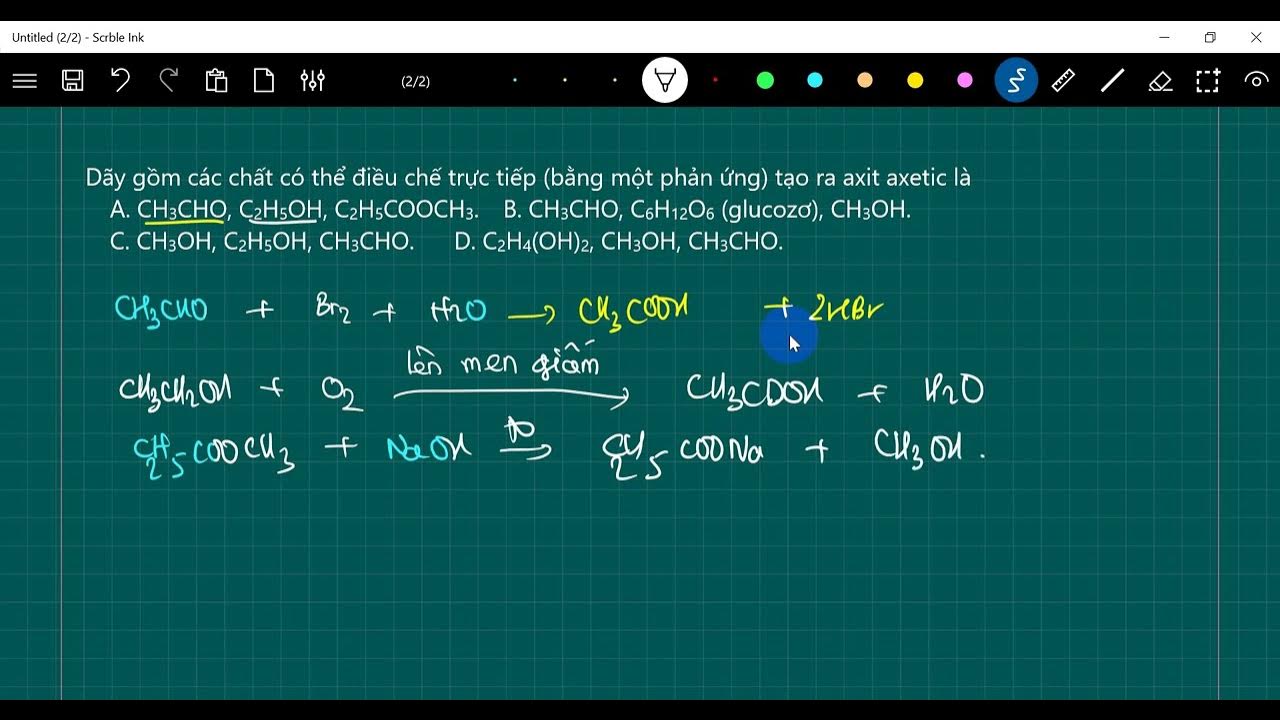 Untitled (2/2) - Scrble Ink
(2/2)
Dãy gồm các chất có thể điều chế trực tiếp (bằng một phản ứng) tạo ra axit axetic là
A. CH₃CHO, C₂H₅OH, C₂H₅COOCH₃. B. CH₃CHO, C₆H₁₂O₆ (glucozơ), CH₃OH.
C. CH₃OH, C₂H₅OH, CH₃CHO. D. C₂H₄(OH)₂, CH₃OH, CH₃CHO.
CH₃CHO + Br₂ + H₂O → CH₃COOH + 2HBr
lên men giấm
CH₃CH₂OH + O₂ → CH₃COOH + H₂O
t°
C₂H₅COOCH₃ + NaOH → C₂H₅COONa + CH₃OH.